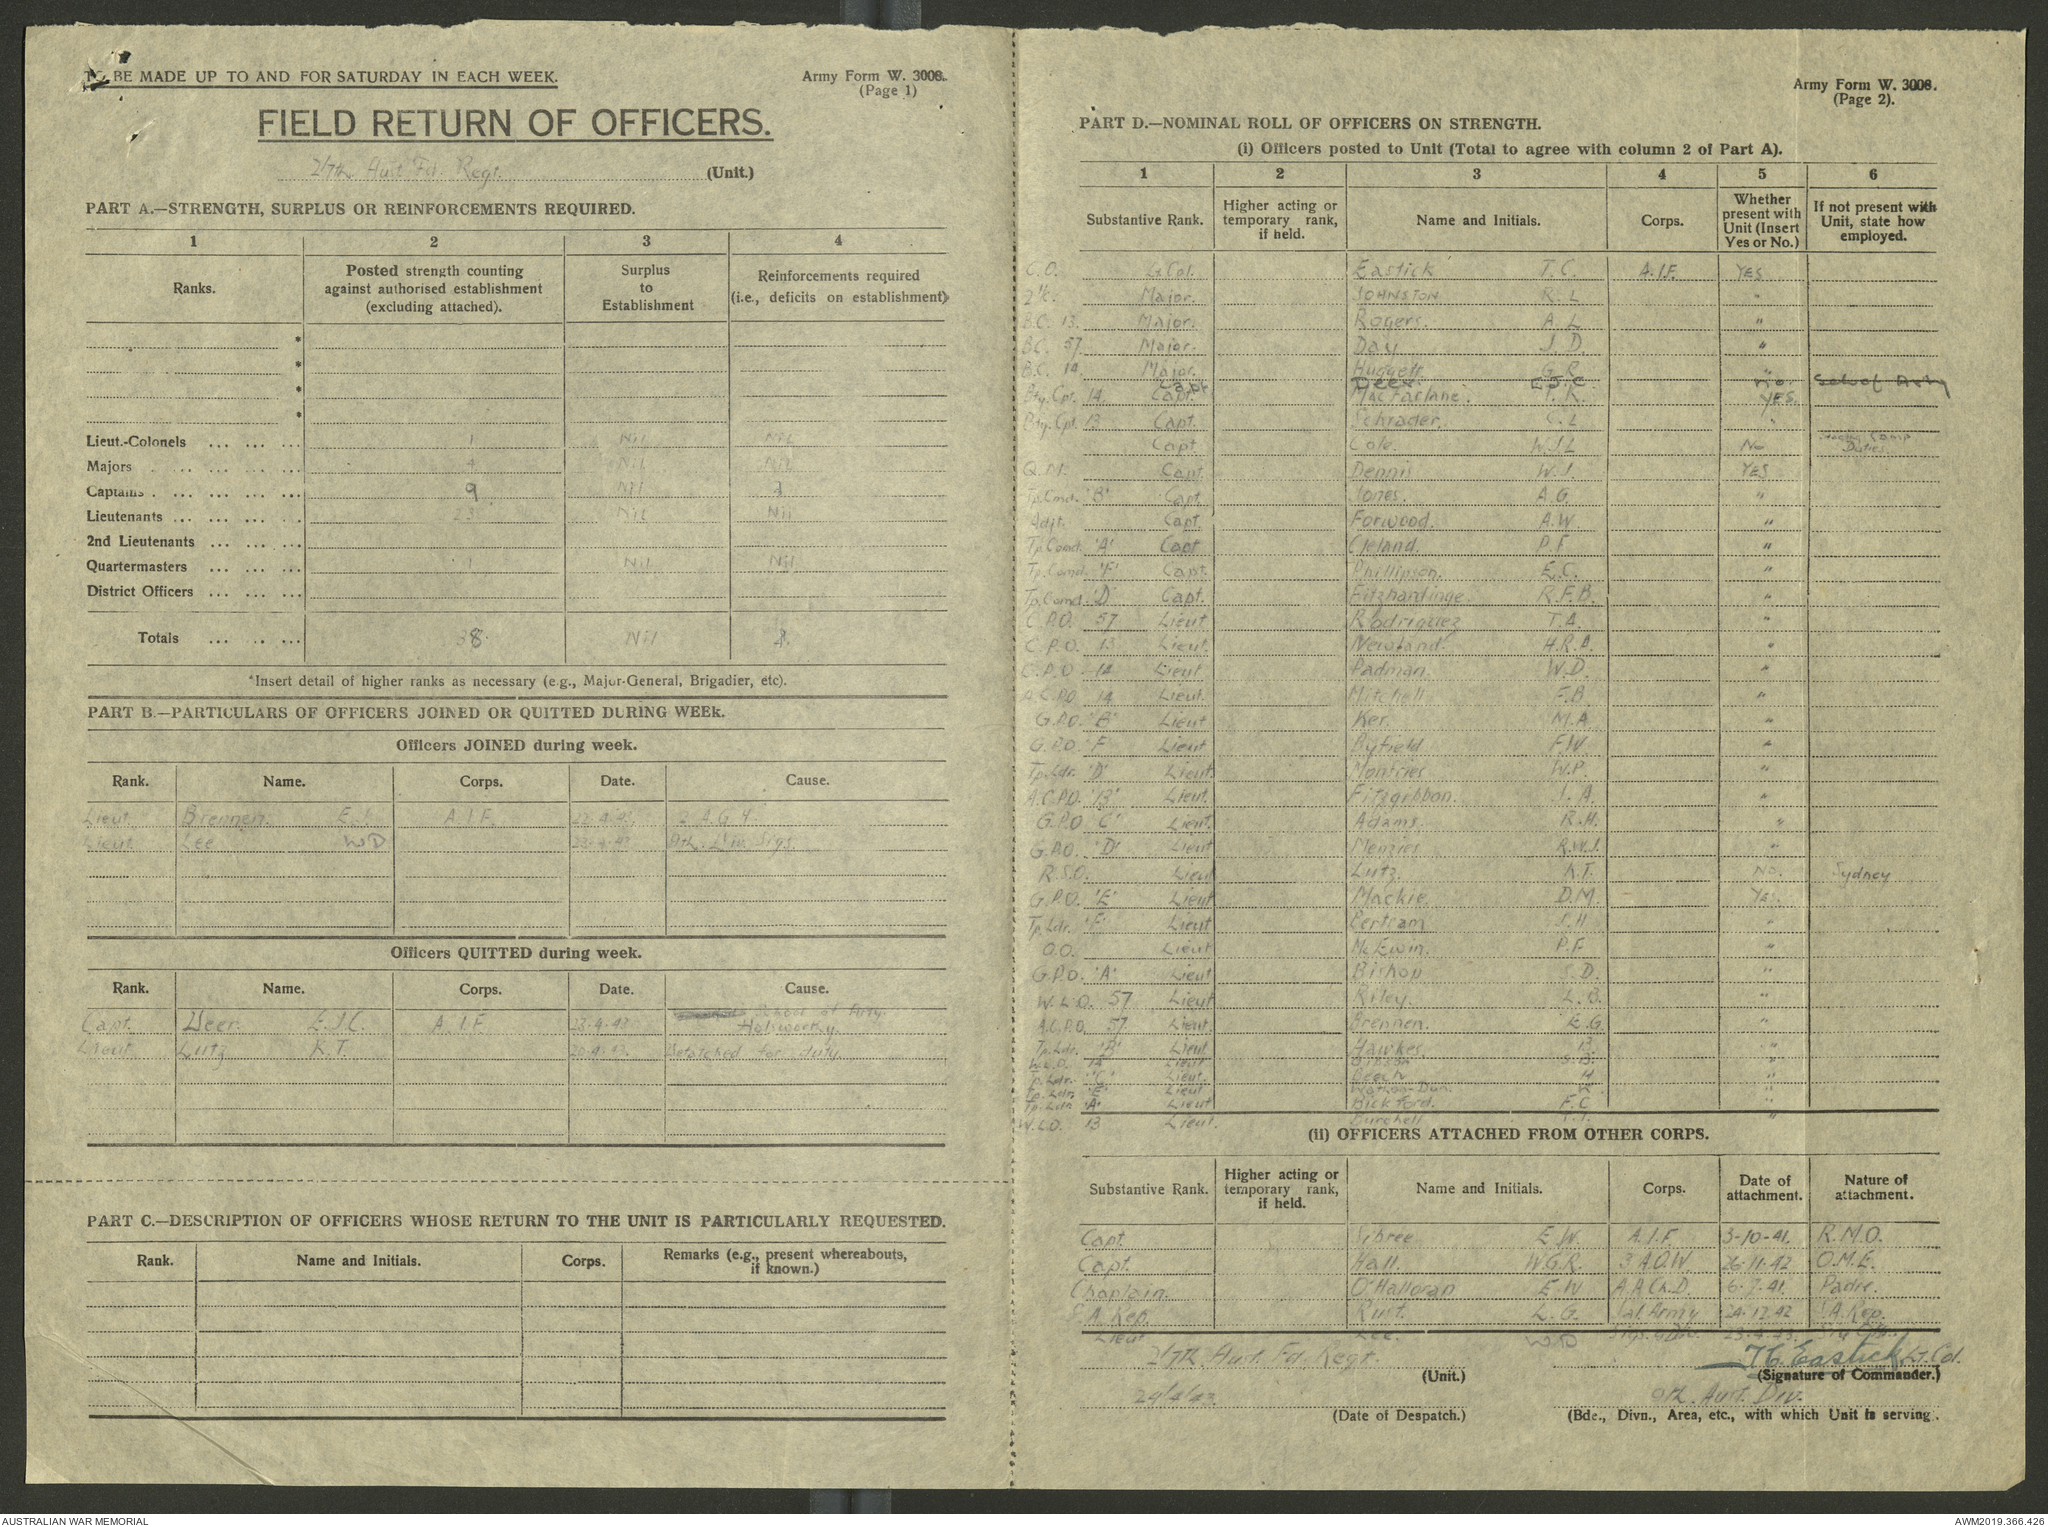 TO BE MADE UP TO AND FOR SATURDAY IN EACH WEEK.
Army Form W. 3008.
(Page 1)
FIELD RETURN OF OFFICERS.
2/7th Aust Fd. Regt. (Unit.)
PART A.—STRENGTH, SURPLUS OR REINFORCEMENTS REQUIRED.
1 2 3 4
Ranks. Posted strength counting against authorised establishment (excluding attached). Surplus to Establishment Reinforcements required (i.e., deficits on establishment)
*
*
*
*
Lieut.-Colonels ... ... ... 1 Nil Nil
Majors ... ... ... ... 4 Nil Nil
Captains ... ... ... ... 9 Nil
Lieutenants ... ... ... ... 23 Nil Nil
2nd Lieutenants ... ... ...
Quartermasters ... ... ... 1 Nil Nil
District Officers ... ... ...
Totals ... ... ... 38 Nil
*Insert detail of higher ranks as necessary (e.g., Major-General, Brigadier, etc).
PART B.—PARTICULARS OF OFFICERS JOINED OR QUITTED DURING WEEK.
Officers JOINED during week.
Rank. Name. Corps. Date. Cause.
Lieut. Brennen. A.I.F.
Lieut. Lee WD 23-4-43 9th. Div Sigs
Officers QUITTED during week.
Rank. Name. Corps. Date. Cause.
Capt. Deer. E.J.C. A.I.F. 23-4-43 School of Arty. Holsworthy.
Lieut Lutz K.T. 20-4-43. Detatched for duty
PART C.—DESCRIPTION OF OFFICERS WHOSE RETURN TO THE UNIT IS PARTICULARLY REQUESTED.
Rank. Name and Initials. Corps. Remarks (e.g., present whereabouts, if known.)
Army Form W. 3008.
(Page 2).
PART D.—NOMINAL ROLL OF OFFICERS ON STRENGTH.
(i) Officers posted to Unit (Total to agree with column 2 of Part A).
1 2 3 4 5 6
Substantive Rank. Higher acting or temporary rank, if held. Name and Initials. Corps. Whether present with Unit (Insert Yes or No.) If not present with Unit, state how employed.
C.O. Lt Col. Eastick T.C. A.I.F. YES
2 i/c. Major. JOHNSTON R.L "
B.C. 13. Major. Rogers. A.L "
B.C. 57. Major. Day J.D. "
B.C. 14. Major. Huggett G.R "
Capt Deer E.J.C. No. Sch of Arty
Bty. Cpt. 14. Capt. MacFarlane. T.R. YES.
Bty. Cpt. 13 Capt. Schrader. C.L "
Capt Cole. W.J.L No Camp Duties.
Q.M. Capt Dennis W.J. YES
Tp.Comd. 'B' Capt. Jones. A.G. "
Adjt. Capt. Forwood. A.W. "
Tp.Comd. 'A' Capt Cleland. P.F. "
Tp.Comd. 'F' Capt. Phillipson. E.C. "
Tp.Comd. 'D' Capt. Fitzhardinge. R.F.B. "
C.P.O. 57 Lieut Rodriguez T.A. "
C.P.O. 13 Lieut. Newland. H.R.B. "
C.P.O. 14 Lieut. Padman. W.D. "
A.C.P.O. 14 Lieut. Mitchell F.B "
G.P.O. 'B' Lieut Ker. M.A. "
G.P.O. 'F' Lieut Byfield F.W. "
Tp.Ldr. 'D' Lieut. Montries W.P. "
A.C.P.O. '13' Lieut. Fitzgibbon. J.A. "
G.P.O 'C' Lieut. Adams. R.H. "
G.P.O. 'D' Lieut Menzies R.W.J. "
R.S.O. Lieut Lutz. K.T. No. Sydney
G.P.O. 'E' Lieut Mackie. D.M. Yes.
Tp.Ldr. 'F' Lieut Bertram J.H "
O.O. Lieut McEwin. P.F "
G.P.O. 'A' Lieut Bishop S.D. "
W.L.O. 57 Lieut Riley. L.B. "
A.C.P.O. 57 Lieut. Brennen. E.G "
Tp.Ldr. 'B' Lieut Hawkes. "
W.L.O. 14 Lieut "
Tp.Ldr. 'C' Lieut. Beech H "
Tp.Ldr. 'E' Lieut "
Tp.Ldr. 'A' Lieut Bickford. F.C "
W.L.O. 13 Lieut. Burchell "
(ii) OFFICERS ATTACHED FROM OTHER CORPS.
Substantive Rank. Higher acting or temporary rank, if held. Name and Initials. Corps. Date of attachment. Nature of attachment.
Capt. Sibree E.W. A.I.F. 3-10-41. R.M.O.
Capt. Hall. W.G.R. 3 A.O.W 26-11-42 O.M.E.
Chaplain. O'Halloran E.W A.A.Ch.D. 6-7-41. Padre.
S.A. Rep. Rust. L.G. Sal. Army 24-12-42 S.A. Rep.
Lieut Lee. WD 23-4-43.
2/7th. Aust. Fd. Regt.
(Unit.)
T C Eastick Lt. Col.
(Signature of Commander.)
24/4/43.
(Date of Despatch.)
9th. Aust. Div.
(Bde., Divn., Area, etc., with which Unit is serving.
AUSTRALIAN WAR MEMORIAL
AWM2019.366.426